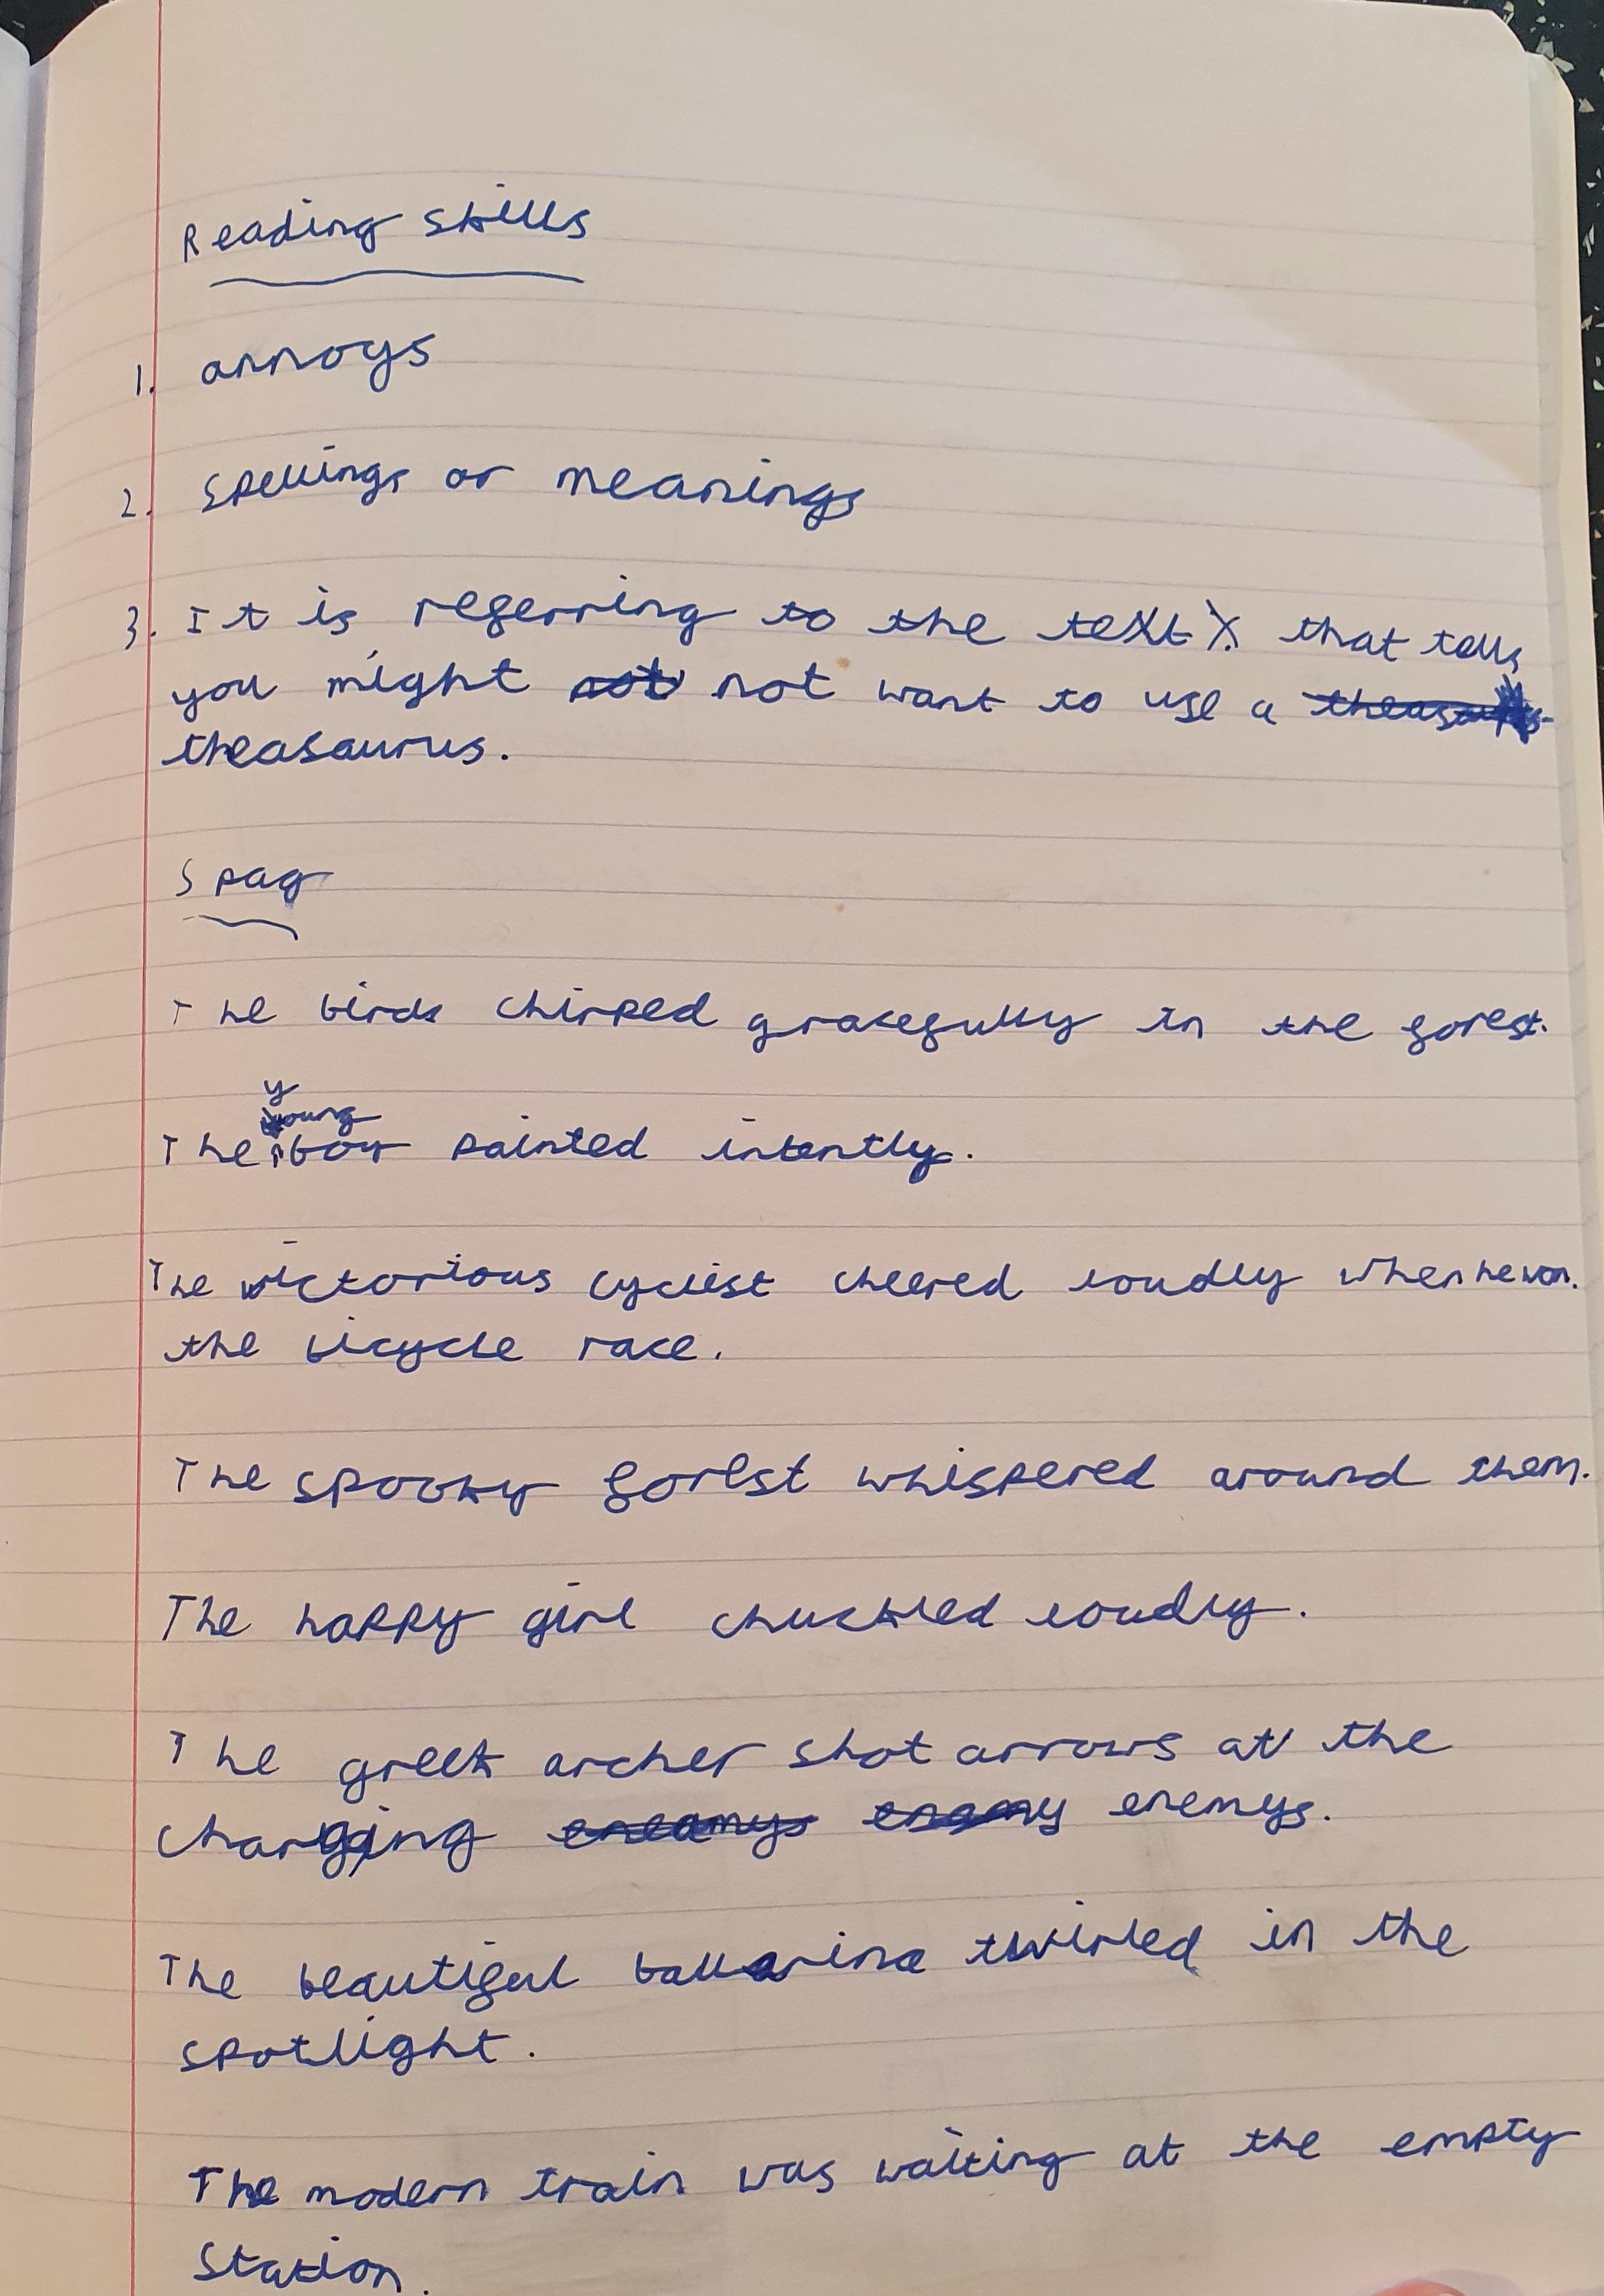 Reading skills
1. annoys
2. Spellings or meanings
3. It is referring to the text that tells
you might not not want to use a
theasaurus.
Spag
The birds chirped gracefully in the forest.
y
young
The boy painted intently.
The victorious cyclist cheered loudly when he won.
the bicycle race.
The spooky forest whispered around them.
The happy girl chuckled loudly.
The greek archer shot arrows at the
charging eneamys enemy enemys.
The beautiful ballarina twirled in the
spotlight.
The modern train was waiting at the empty
Station.